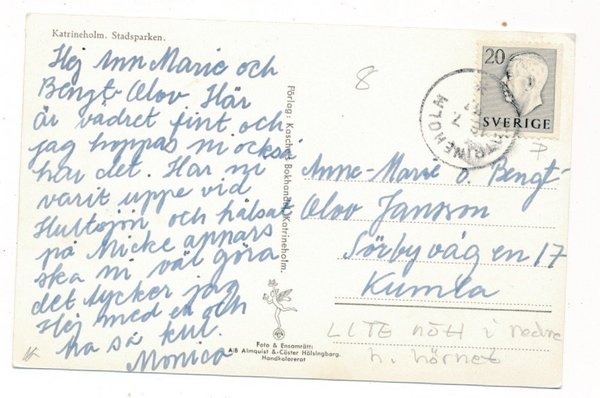 Katrineholm. Stadsparken.
Hej Ann Marie och
Bengt-Olov Här
är vädret fint och
jag hoppas ni också
har det. Har ni
varit uppe vid
Hultsjön, och hälsat
på Micke
ska ni väl göra
det tycker jag
Hej med er och
ha så kul.
Monica
Förlag: Kaschers Bokhandel, Katrineholm.
Foto & Ensamrätt:
A/B Almquist & Cöster Hälsingborg.
Handkolorerat
8
20
SVERIGE
KATRINEHOLM
Anne-Marie o. Bengt-
Olov Jansson
Sörbyvägen 17
Kumla
LITE nött i nedre
h. hörnet